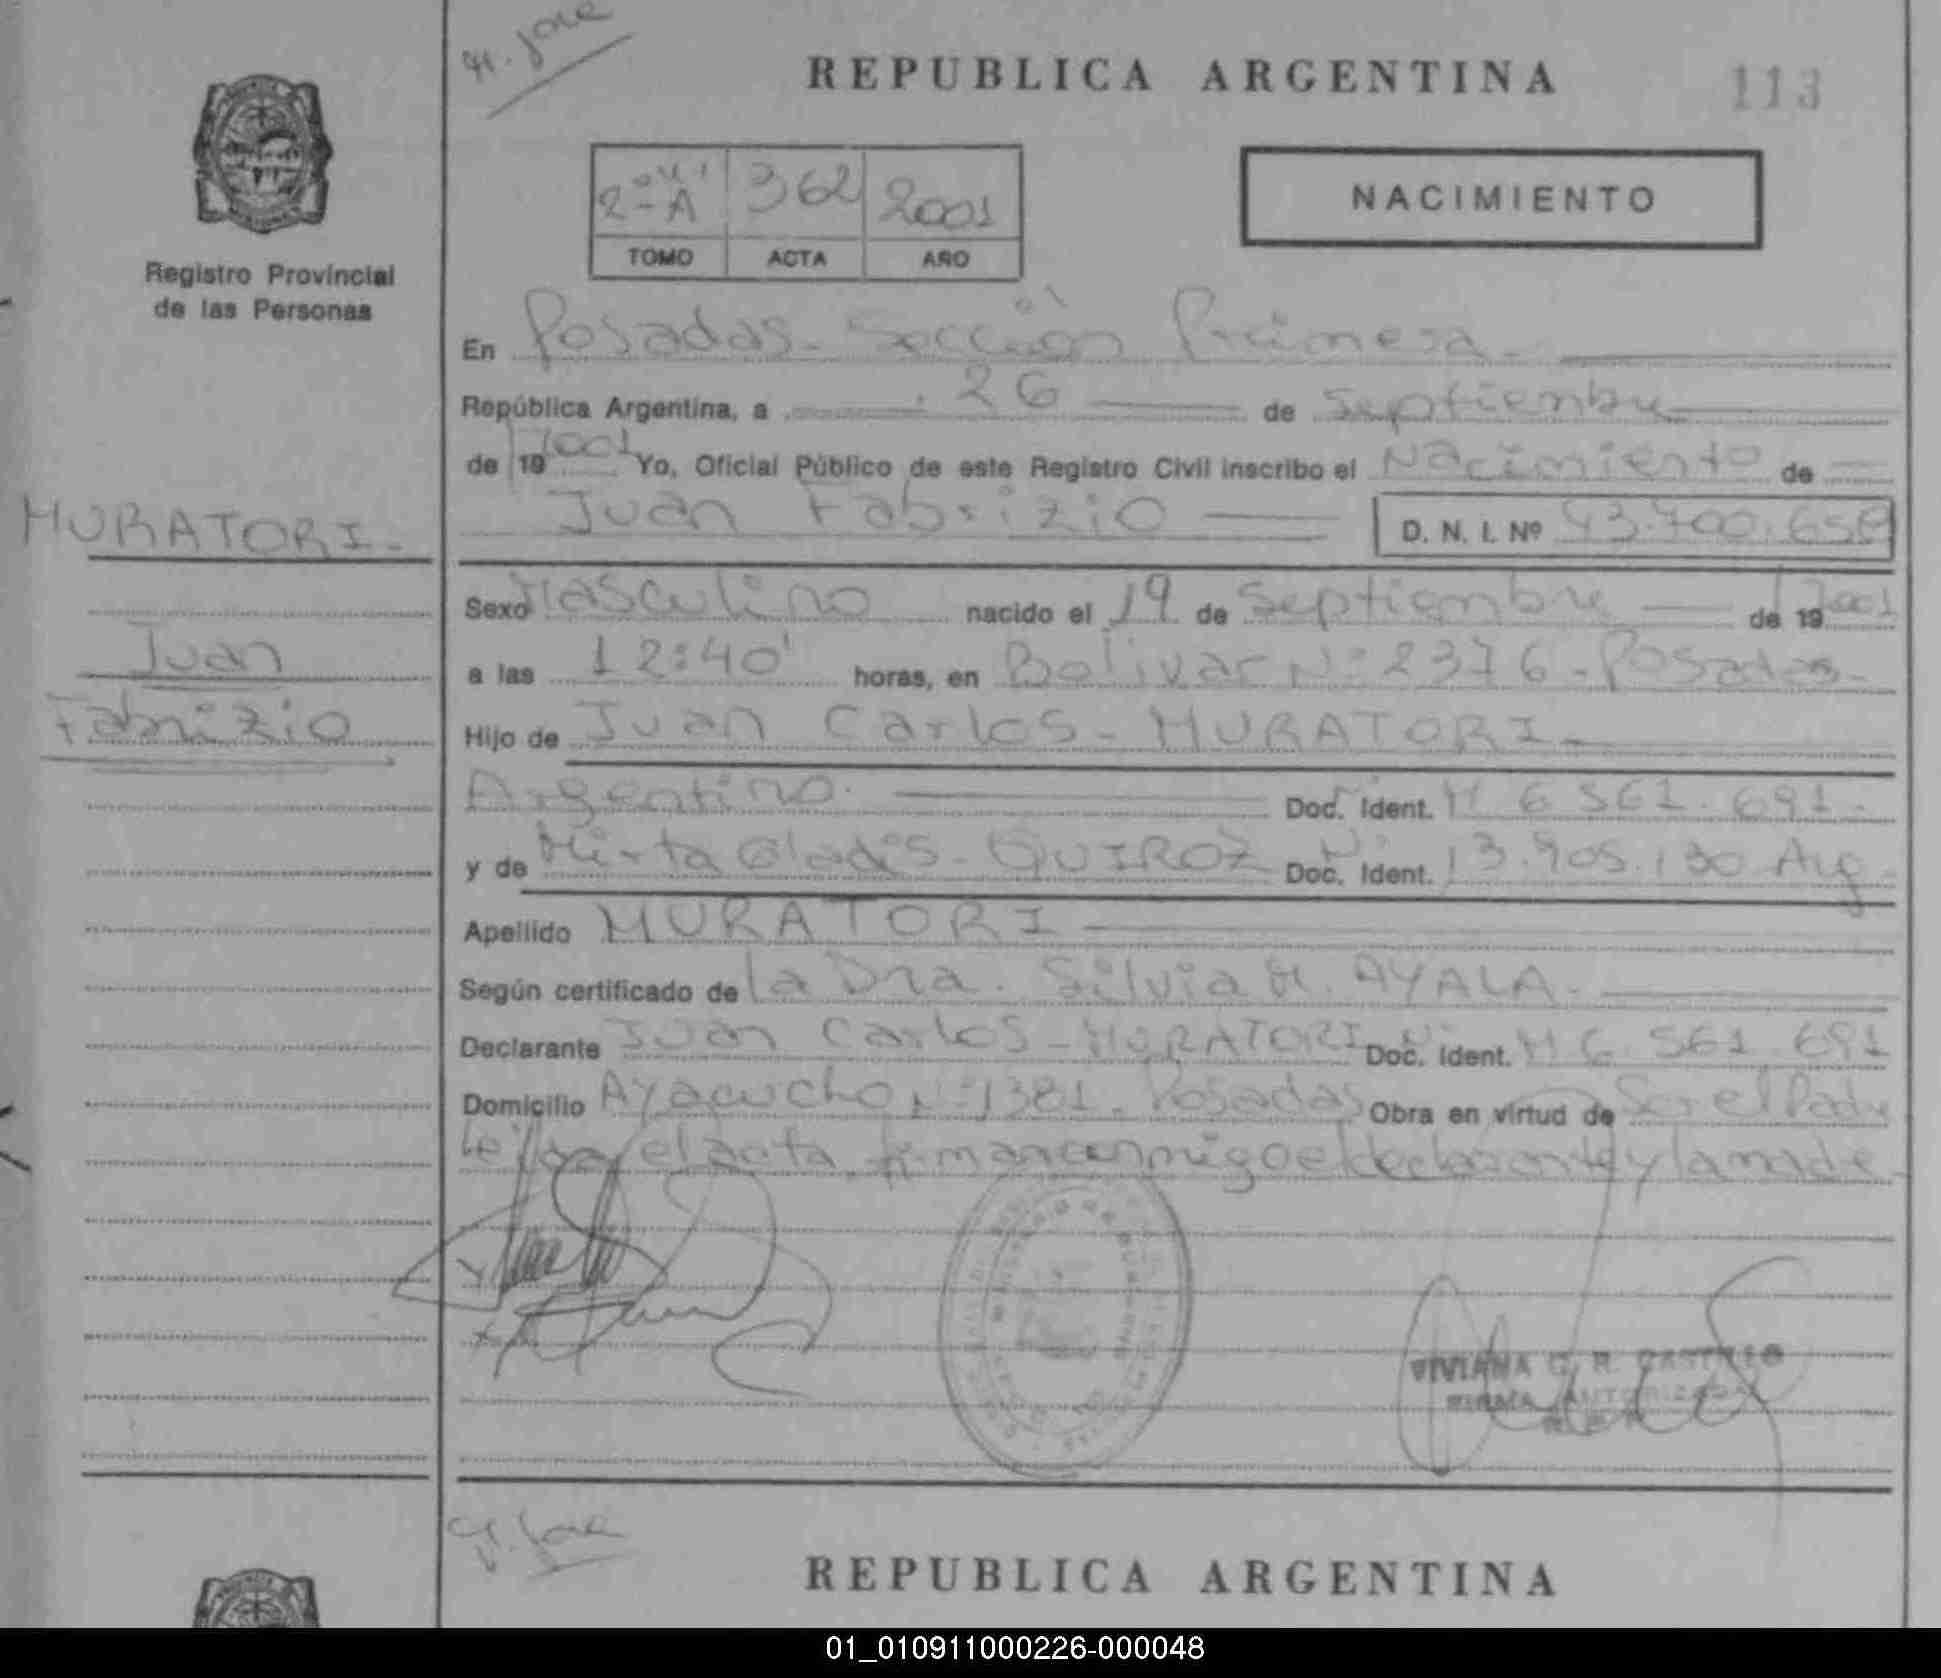 REPUBLICA ARGENTINA
113
2º "A" 362 2001
TOMO ACTA AÑO
NACIMIENTO
Registro Provincial
de las Personas
En Posadas - Sección Primera -
República Argentina, a 26 de Septiembre
de 19 2001 Yo, Oficial Público de este Registro Civil inscribo el Nacimiento de
Juan Fabrizio D. N. I. Nº 43.700.658
MURATORI -
Juan
Fabrizio
Sexo Masculino nacido el 19 de Septiembre de 19 2001
a las 12:40' horas, en Bolivar Nº 2376 - Posadas -
Hijo de Juan Carlos - MURATORI -
Argentino. Doc. Ident. M 6 561.691 -
y de Mirta Gladis - QUIROZ Doc. Ident. 13.905.130 Arg -
Apellido MURATORI
Según certificado de la Dra. Silvia M. AYALA -
Declarante Juan Carlos - MURATORI Doc. Ident. M 6 561 691
Domicilio Ayacucho Nº 1381. Posadas Obra en virtud de Ser el Padre
Leída el acta firman conmigo el declarante y la madre -
VIVIANA C. R. CASTILLO
FIRMA AUTORIZADA
REPUBLICA ARGENTINA
01_010911000226-000048